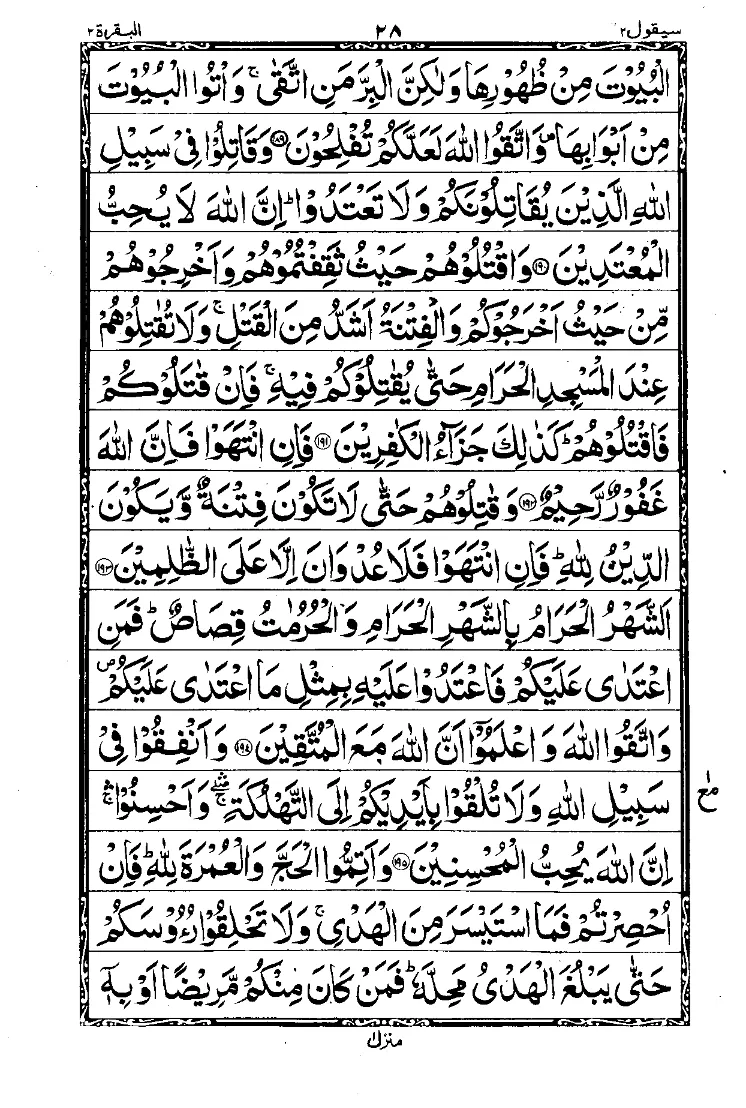 سيقول٢ ٢٨ البقرة٢
الْبُيُوْتَ مِنْ ظُهُوْرِهَا وَلٰكِنَّ الْبِرَّ مَنِ اتَّقٰى ۚ وَاْتُوا الْبُيُوْتَ
مِنْ اَبْوَابِهَا ۪ وَاتَّقُوا اللّٰهَ لَعَلَّكُمْ تُفْلِحُوْنَ ﴿١٨٩﴾ وَقَاتِلُوْا فِيْ سَبِيْلِ
اللّٰهِ الَّذِيْنَ يُقَاتِلُوْنَكُمْ وَلَا تَعْتَدُوْا ؕ اِنَّ اللّٰهَ لَا يُحِبُّ
الْمُعْتَدِيْنَ ﴿١٩٠﴾ وَاقْتُلُوْهُمْ حَيْثُ ثَقِفْتُمُوْهُمْ وَاَخْرِجُوْهُمْ
مِّنْ حَيْثُ اَخْرَجُوْكُمْ وَالْفِتْنَةُ اَشَدُّ مِنَ الْقَتْلِ ۚ وَلَا تُقٰتِلُوْهُمْ
عِنْدَ الْمَسْجِدِ الْحَرَامِ حَتّٰى يُقٰتِلُوْكُمْ فِيْهِ ۚ فَاِنْ قٰتَلُوْكُمْ
فَاقْتُلُوْهُمْ ؕ كَذٰلِكَ جَزَآءُ الْكٰفِرِيْنَ ﴿١٩١﴾ فَاِنِ انْتَهَوْا فَاِنَّ اللّٰهَ
غَفُوْرٌ رَّحِيْمٌ ﴿١٩٢﴾ وَقٰتِلُوْهُمْ حَتّٰى لَا تَكُوْنَ فِتْنَةٌ وَّيَكُوْنَ
الدِّيْنُ لِلّٰهِ ؕ فَاِنِ انْتَهَوْا فَلَا عُدْوَانَ اِلَّا عَلَى الظّٰلِمِيْنَ ﴿١٩٣﴾
اَلشَّهْرُ الْحَرَامُ بِالشَّهْرِ الْحَرَامِ وَالْحُرُمٰتُ قِصَاصٌ ؕ فَمَنِ
اعْتَدٰى عَلَيْكُمْ فَاعْتَدُوْا عَلَيْهِ بِمِثْلِ مَا اعْتَدٰى عَلَيْكُمْ ۪
وَاتَّقُوا اللّٰهَ وَاعْلَمُوْٓا اَنَّ اللّٰهَ مَعَ الْمُتَّقِيْنَ ﴿١٩٤﴾ وَاَنْفِقُوْا فِيْ
سَبِيْلِ اللّٰهِ وَلَا تُلْقُوْا بِاَيْدِيْكُمْ اِلَى التَّهْلُكَةِ ۛۚ وَاَحْسِنُوْا ۛۚ
مع
اِنَّ اللّٰهَ يُحِبُّ الْمُحْسِنِيْنَ ﴿١٩٥﴾ وَاَتِمُّوا الْحَجَّ وَالْعُمْرَةَ لِلّٰهِ ؕ فَاِنْ
اُحْصِرْتُمْ فَمَا اسْتَيْسَرَ مِنَ الْهَدْيِ ۚ وَلَا تَحْلِقُوْا رُءُوْسَكُمْ
حَتّٰى يَبْلُغَ الْهَدْيُ مَحِلَّهٗ ؕ فَمَنْ كَانَ مِنْكُمْ مَّرِيْضًا اَوْ بِهٖٓ
منزل